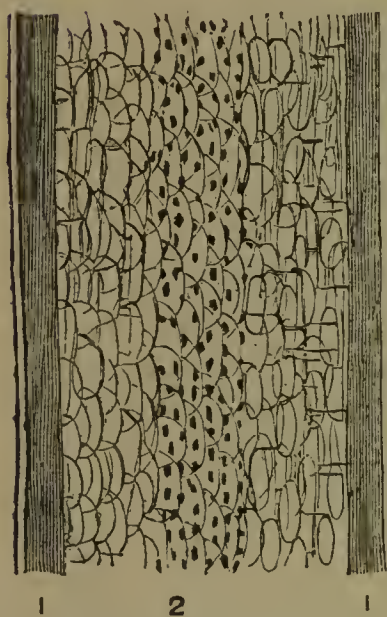 1 2 1